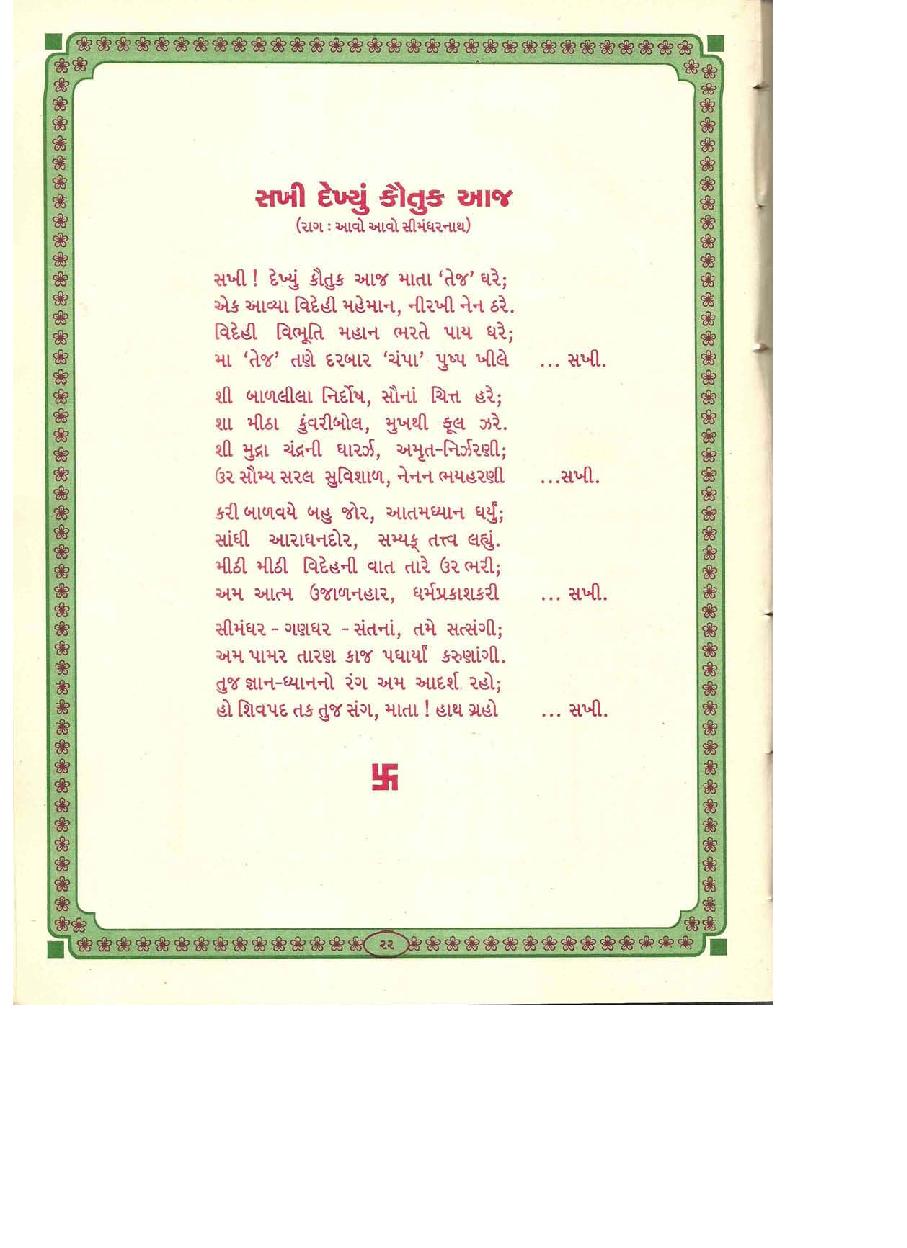 સખી દેખ્યું કૌતુક આજ
(રાગ : આવો આવો સીમંધરનાથ)
સખી ! દેખ્યું કૌતુક આજ માતા ‘તેજ’ ઘરે;
એક આવ્યા વિદેહી મહેમાન, નીરખી નેન ઠરે.
વિદેહી વિભૂતિ મહાન ભરતે પાય ધરે;
મા ‘તેજ’ તણે દરબાર ‘ચંપા’ પુષ્પ ખીલે ... સખી.
શી બાળલીલા નિર્દોષ, સૌનાં ચિત્ત હરે;
શા મીઠા કુંવરીબોલ, મુખથી ફૂલ ઝરે.
શી મુદ્રા ચંદ્રની ધારર્ઝ, અમૃત-નિર્ઝરણી;
ઉર સૌમ્ય સરલ સુવિશાળ, નેનન ભયહરણી ...સખી.
કરી બાળવયે બહુ જોર, આતમધ્યાન ધર્યું;
સાંધી આરાધનદોર, સમ્યક્ તત્ત્વ લહ્યું.
મીઠી મીઠી વિદેહની વાત તારે ઉર ભરી;
અમ આત્મ ઉજાળનહાર, ધર્મપ્રકાશકરી ... સખી.
સીમંધર - ગણધર - સંતનાં, તમે સત્સંગી;
અમ પામર તારણ કાજ પધાર્યાં કરુણાંગી.
તુજ જ્ઞાન-ધ્યાનનો રંગ અમ આદર્શ રહો;
હો શિવપદ તક તુજ સંગ, માતા ! હાથ ગ્રહો ... સખી.
૨૨